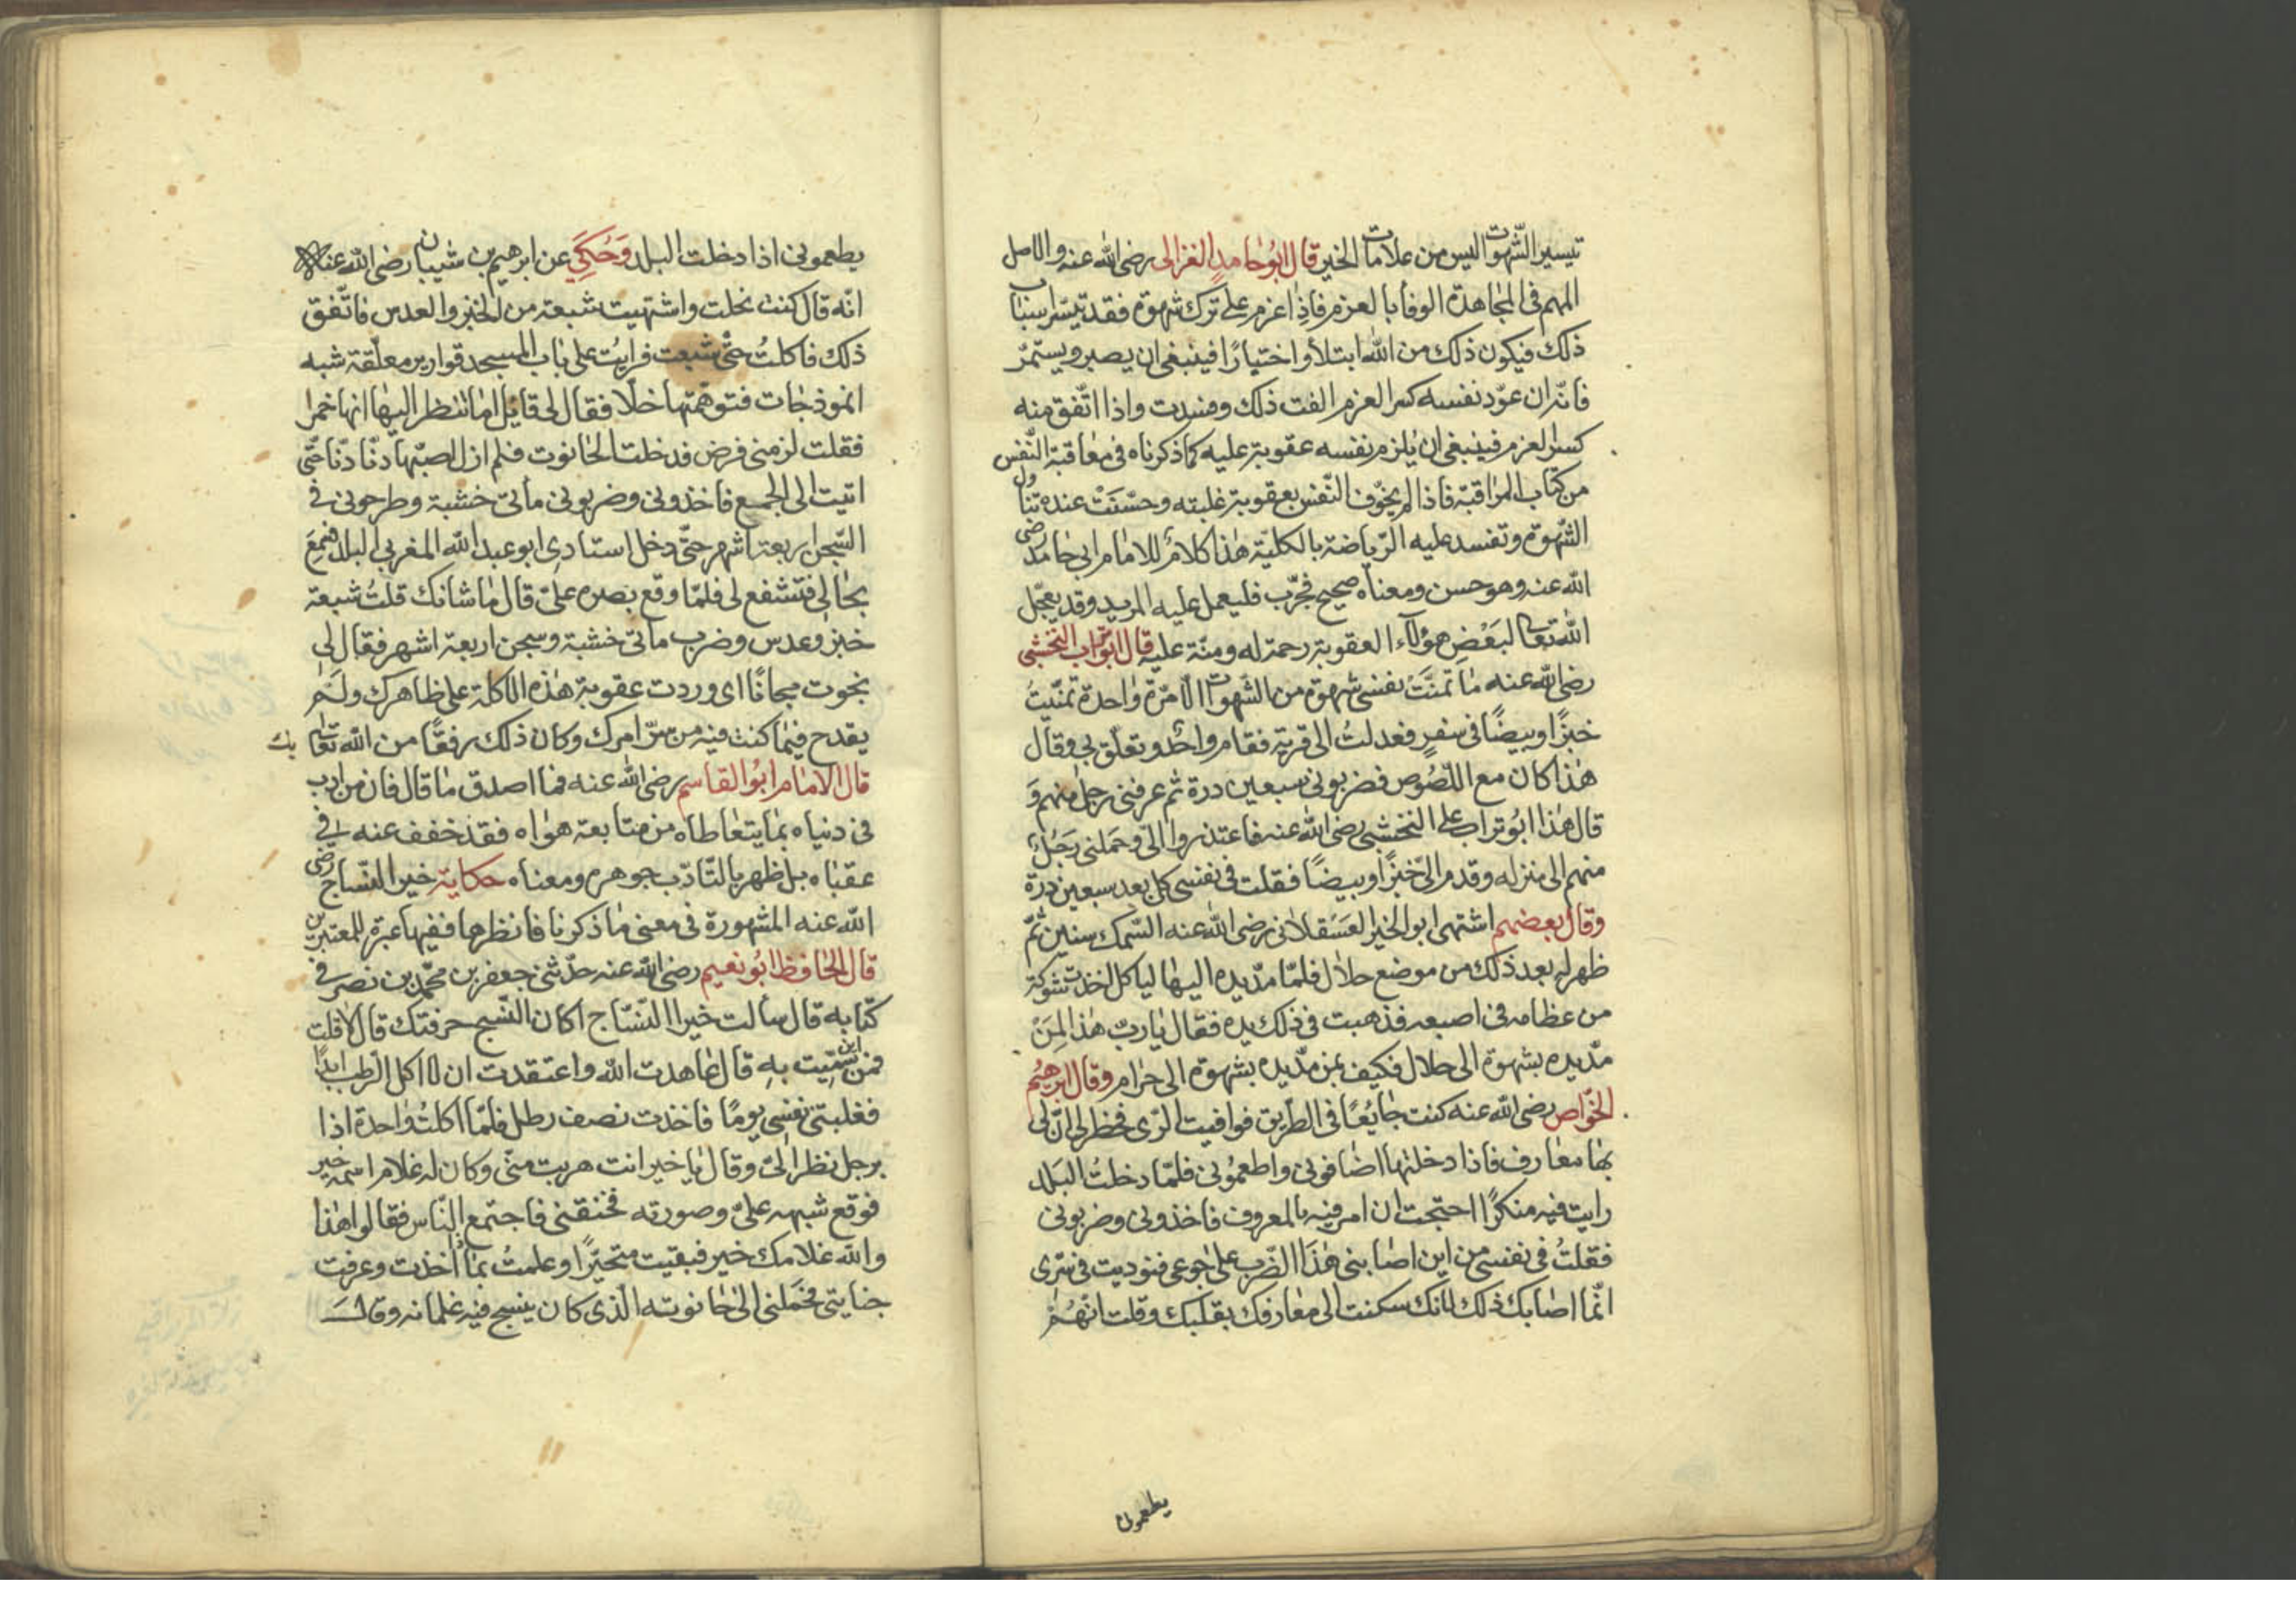 تيسير الشّهوات ليس من علامات الخير قال ابُو حامدٍ الغزالى رضى الله عنه والاصل
المهم فى المجاهدة الوفا بالعزم فاذا عزم على ترك شهوة فقد تيسّر اسباب
ذلك فيكون ذلك من الله ابتلاً واختيارًا فينبغى ان يصبر ويستمرّ
فانّه ان عوّد نفسه كسر العزم الفت ذلك وفسدت واذا اتّفق منه
كسر العزم فينبغى ان يُلزم نفسه عقوبة عليه كما ذكرناه فى معاقبة النّفس
من كتاب المراقبة فاذا لم يخوّف النّفس بعقوبة غلبته وحسّنَتْ عنده تناول
الشّهوة وتفسد عليه الرّياضة بالكليّة هذا كلامُ للامام ابى حامد رضى
الله عنه وهو حسن ومعناه صحيح مجرّب فليعمل عليه المريد وقد يعجّل
الله تعالى لبَعْضِ هؤلآء العقوبة رحمة له ومنّة عليه قال ابو تراب النخشبى
رضى الله عنه ما تمنَّتْ نفسى شهوة من الشّهوات الّا مرّة واحدة تمنّيتُ
خبزًا وبيضًا فى سفرٍ فعدلتُ الى قرية فقام واحدُ وتعلّق بى وقال
هذا كان مع اللّصُوص فضربونى سبعين درة ثم عرفنى رجل منهم وَ
قال هذا ابُو تراب على النخشبى رضى الله عنه فاعتذروا الىّ وحمَلنى رَجَلُ
منهم الى منزله وقدم الىّ خبزًا وبيضًا فقلت فى نفسى كل بعد سبعين درة
وقال بعضهم اشتهى ابو الخير العَسْقلانى رضى الله عنه السّمك سنين ثمّ
ظهر له بعد ذلك من موضع حلال فلمّا مدّ يده اليها لياكل اخذت شوكة
من عظامه فى اصبعه فذهبت فى ذلك يده فقال يا ربّ هذا لِمَنْ
مدّ يده بشهوة الى حلال فكيف بمن مدّ يده بشهوة الى حرام وقال ابرهيمُ
الخوّاص رضى الله عنه كنت جايعًا فى الطّريق فوافيت الرّى فخطر لى انّ لى
بها معارف فاذا دخلتها اضافونى واطعمُونى فلمّا دخلتُ البَلد
رايت فيه منكرًا احتجت ان امر فيه بالمعروف فاخذونى وضربونى
فقلتُ فى نفسى من اين اصابنى هذَا الضّرب على جوعى فنوديت فى سّرى
انّما اصابك ذلك لانك سكنت الى معارفك بقلبك وقلت انّهُمْ
يطعمونى
يطعمونى اذا دخلت البلد وَحُكِيَ عن ابرهيم بن شيبان رضى الله عنه
انّه قال كنت نحلت واشتهيت شبعة من الخبز والعدس فاتّفق
ذلك فاكلتُ حتّى شبعت فرايتُ على باب المسجد قوارير معلّقة شبه
انموذجات فتوهّمتها خلّا فقال لى قايل اما تنظر اليها انها خمرا
فقلت لزمنى فرض فدخلت الحانوت فلم ازل اصبّها دنّا دنّا حتّى
اتيت الى الجميع فاخذونى وضربونى مأتى خشبة وطرحونى فى
السّجن اربعة اشهر حتّى دخل استادى ابو عبد الله المغربى البلد فسمِعَ
بحالى فتشفع لى فلمّا وقع بصره علىّ قال ما شانك قلتُ شبعة
خبز وعدس وضرب مأتى خشبة وسجن اربعة اشهر فقال لى
نجوت مجانًا اى وردت عقوبة هذه الاكلة على ظاهرك ولَم
يقدح فيما كنت فيه من سرّ امرك وكان ذلك رفقًا من الله تعالى بك
قال الامام ابُو القاسم رضى الله عنه فما اصدق ما قال فان من ادب
فى دنياه بما يتعاطاه من متابعة هواه فقد خفف عنه فى
عقباه بل ظهر بالتّادّب جوهره ومعناه حكاية خير النسّاج رضى
الله عنه المشهورة فى معنى ما ذكرنا فانظرها ففيها عبرة للمعتبرين
قال الحافظ ابُو نعيم رضى الله عنه حدّثنى جعفر بن محمّد بن نصر فى
كتابه قال سألت خير النسّاج اكان النّسج حرفتك قال لا قلت
فمن اين سُمّيت به قال عاهدت الله واعتقدت ان لا اكل الرّطب ابدًا
فغلبتنى نفسى يومًا فاخذت نصف رطل فلمّا اكلتُ واحدة اذا
برجل نظر الىّ وقال يا خير انت هربت منّى وكان له غلام اسمه خير
فوقع شبهه علىّ وصورته فخنقنى فاجتمع النّاس فقالوا هذا
والله غلامك خير فبقيت متحيّرًا وعلمتُ بما اُخذت وعرفت
جنايتى فحَملنى الى حانوته الّذى كان ينسج فيه غلمانه وقال